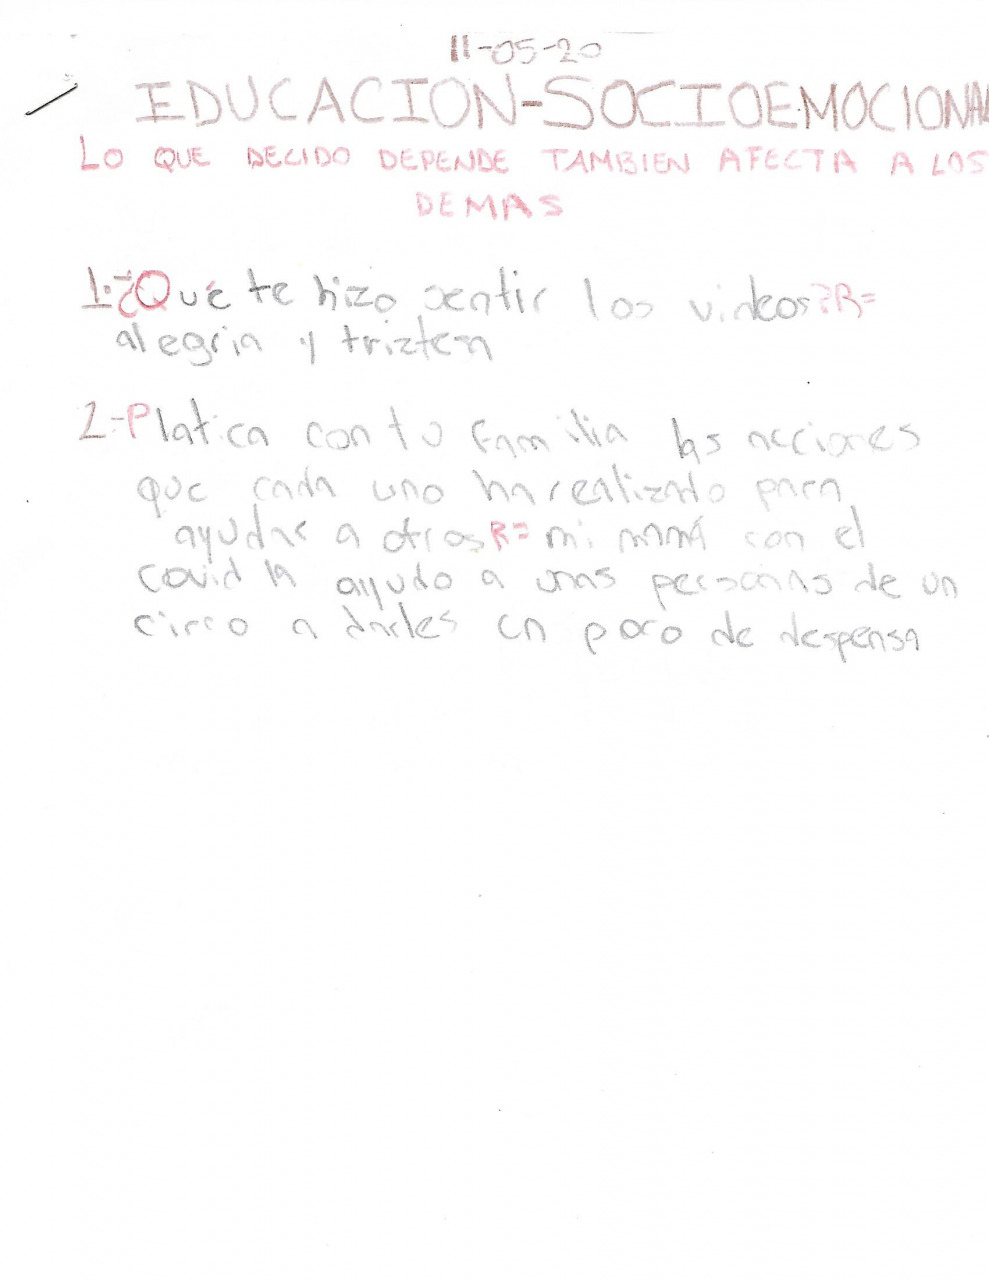 11-05-20
EDUCACION-SOCIOEMOCIONAL
LO QUE DECIDO DEPENDE TAMBIEN AFECTA A LOS
DEMAS
1.-¿Qué te hizo sentir los videos?R=
alegria y trizteza
2.-Platica con tu familia las acciones
que cada uno ha realizado para
ayudar a otros R= mi mamá con el
covid la ayudo a unas personas de un
circo a darles un poco de despensa